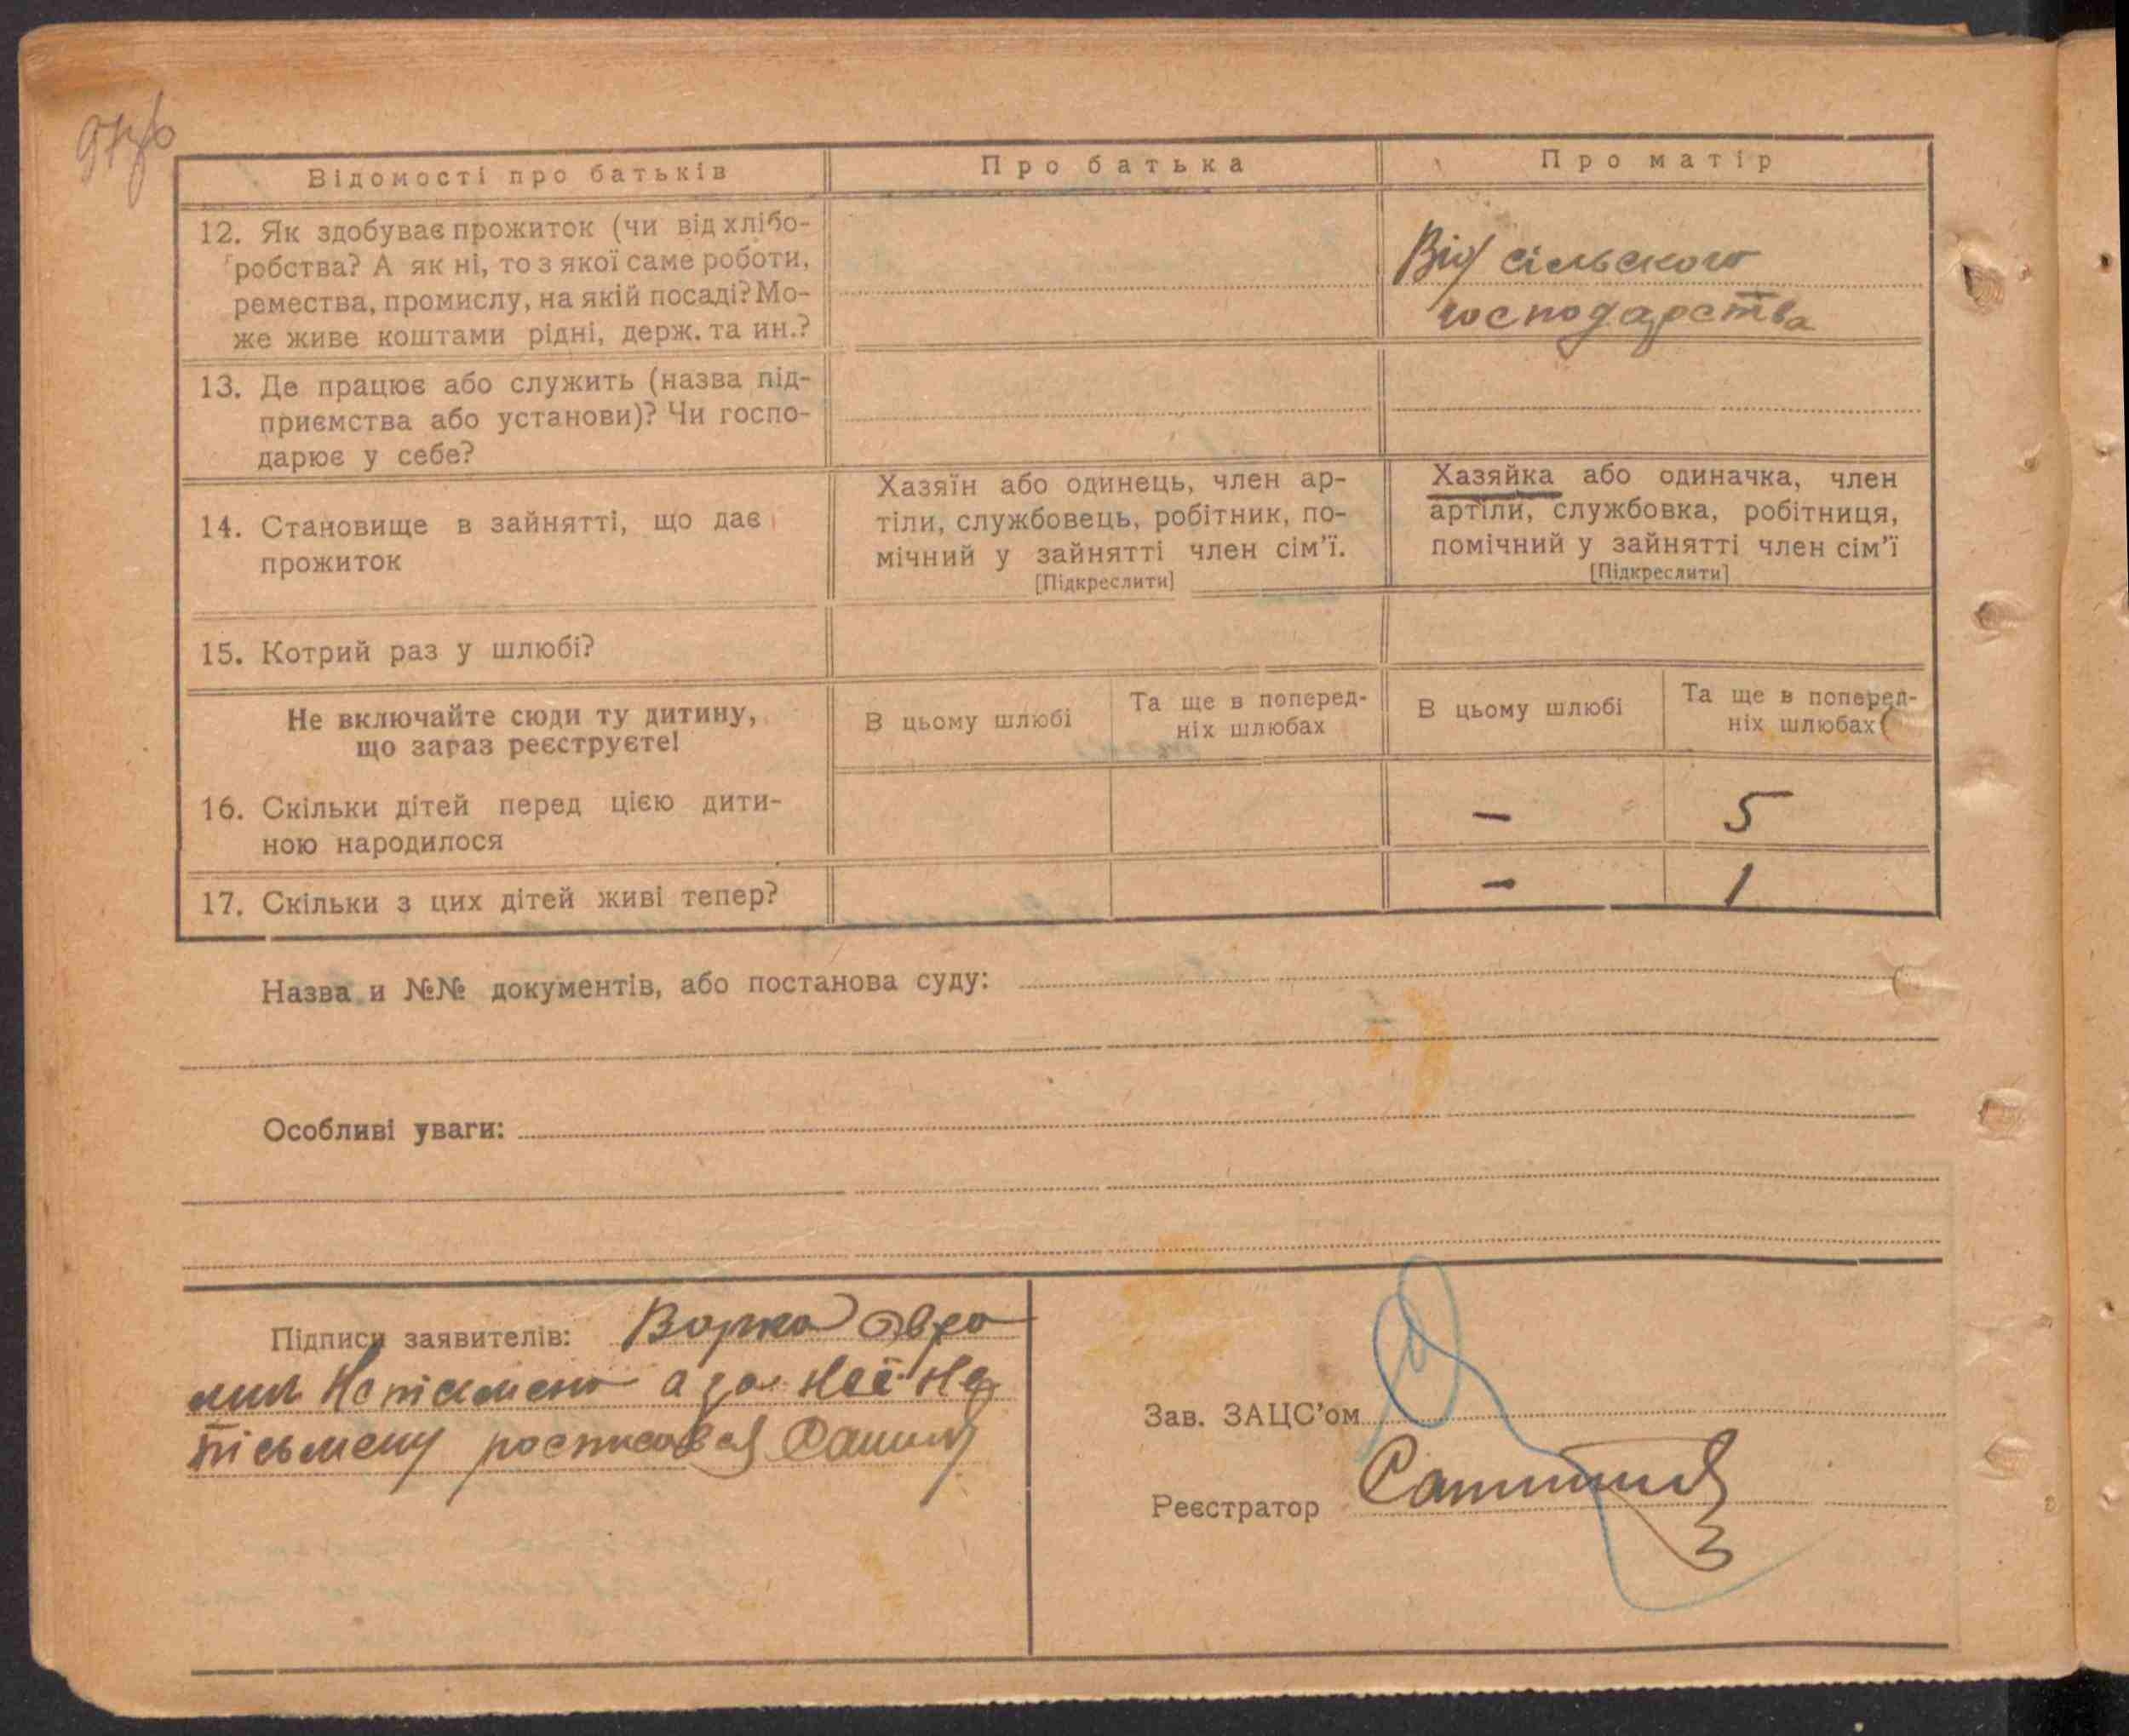 Відомості про батьків
Про батька
Про матір
12. Як здобуває прожиток (чи від хлібо-
робства? А як ні, то з якої саме роботи,
ремества, промислу, на якій посаді? Мо-
же живе коштами рідні, держ. та ин.?
Від сільського
господарства
13. Де працює або служить (назва під-
приємства або установи)? Чи госпо-
дарює у себе?
14. Становище в зайнятті, що дає
прожиток
Хазяїн або одинець, член ар-
тіли, службовець, робітник, по-
мічний у зайнятті член сім’ї.
[Підкреслити]
Хазяйка або одиначка, член
артіли, службовка, робітниця,
помічний у зайнятті член сім’ї
[Підкреслити]
15. Котрий раз у шлюбі?
Не включайте сюди ту дитину,
що зараз реєструєте!
В цьому шлюбі
Та ще в поперед-
ніх шлюбах
В цьому шлюбі
Та ще в поперед-
ніх шлюбах
16. Скільки дітей перед цією дити-
ною народилося
— 5
17. Скільки з цих дітей живі тепер?
— 1
Назва и №№ документів, або постанова суду:
Особливі уваги:
Підписи заявителів:
а за неї не
письмену росписався
Зав. ЗАЦС’ом
Реєстратор